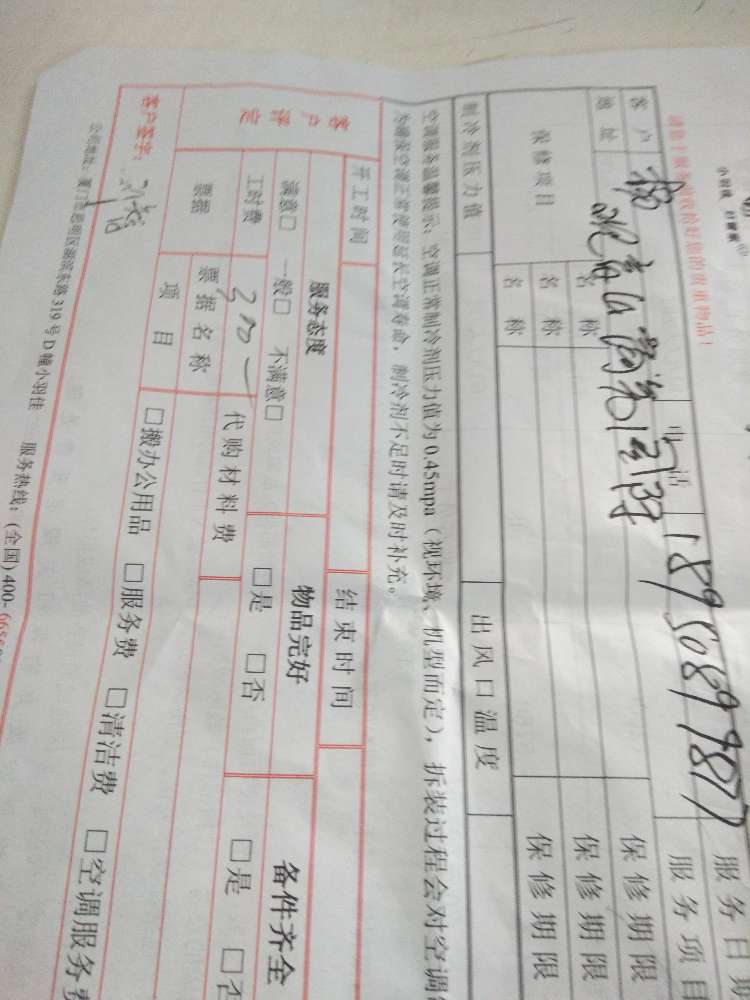 小羽佳
请您于服务前收好您的贵重物品！
服务日期
客户
电话 18950899877
服务项目
地址
保修期限
保修项目
名称
保修期限
名称
保修期限
名称
制冷剂压力值
出风口温度
空调服务温馨提示：空调正常制冷剂压力值为0.45mpa（视环境、机型而定），拆装过程会对空调
为确保空调正常使用延长空调寿命，制冷剂不足时请及时补充。
开工时间
结束时间
客户评定
服务态度
物品完好
备件齐全
满意□ 一般□ 不满意□
□是 □否
□是 □否
工时费
代购材料费
票据
票据名称
项目
□搬办公用品 □服务费 □清洁费 □空调服务费
客户签字：
公司地址：厦门市思明区湖滨东路319号D幢小羽佳 服务热线：(全国)400-